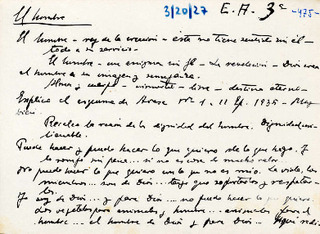 El hombre 3/20/27 E. A. 3º -475-
El hombre - rey de la creación - este no tiene sentido sin él -
todo a su servicio -
El hombre - un enigma sin fe - La revelación - Dios crea
al hombre a su imagen y semejanza.
Alma y cuerpo - inmortal - libre - destino eterno -
Explica el esquema de Nº 1. II Ep. 1935 -
la razón de la dignidad del hombre. Dignidad
Puede hacer y puedo hacer lo que quiero de lo que hago. Y
lo rompo sin pena... si no es cosa de mucho valor.
No puedo hacer lo que quiero con lo que no es mío. La vida, los
son de Dios... tengo que respetarlos y
Y soy de Dios... y para Dios... no puedo hacer lo que quiero.
Los vegetales para animales y hombre... animales para el
hombre... el hombre de Dios y para Dios.